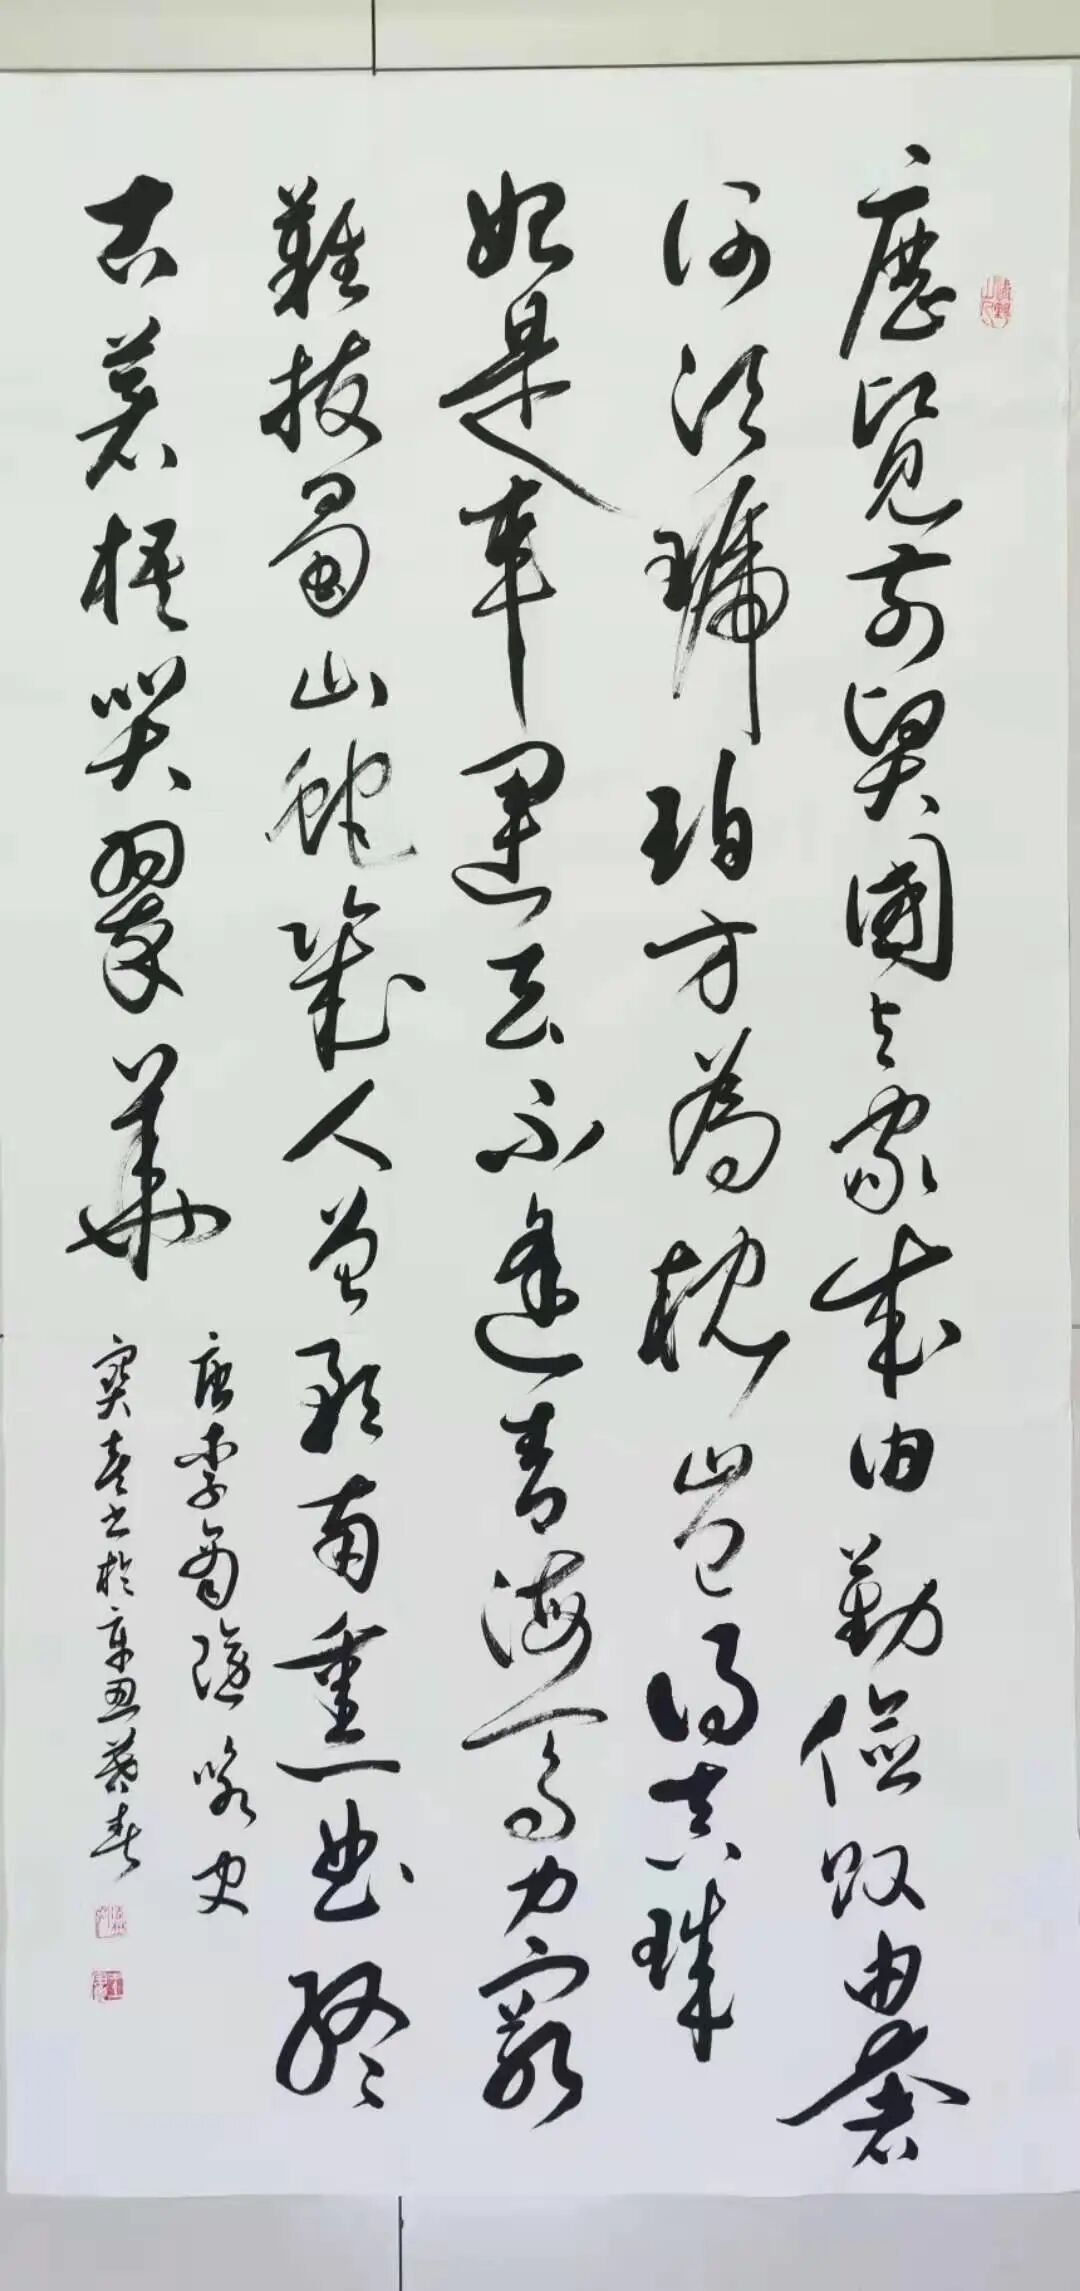 歷覽前賢國与家成由勤儉破由奢
何須琥珀方為枕豈得真珠
始是車運去不逢青海馬力窮
難拔蜀山蛇幾人曾預南熏曲終
古蒼梧哭翠華
唐李商隱咏史
書於辛丑暮春